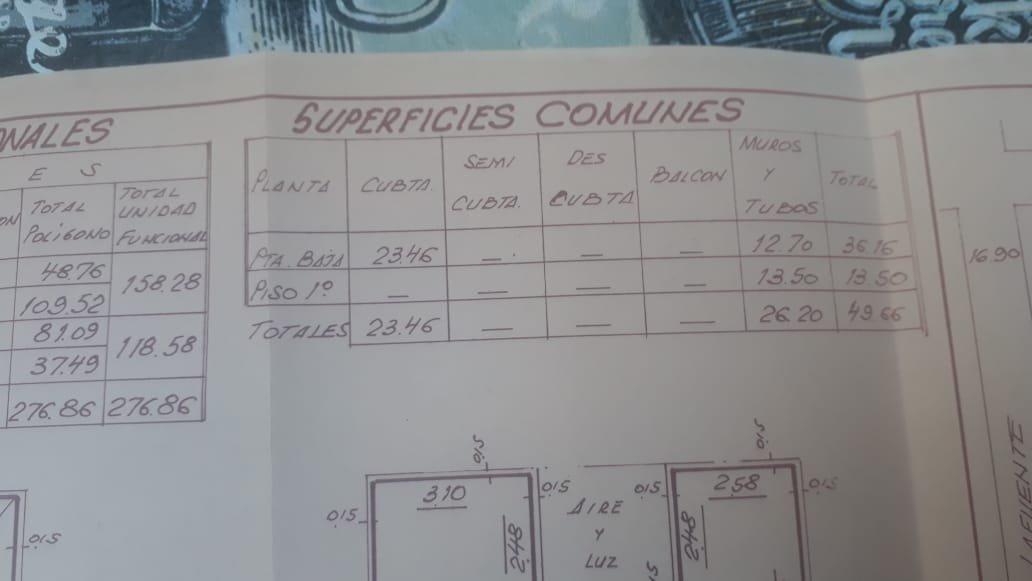 ONALES
E S
ON TOTAL POLÍGONO TOTAL UNIDAD FUNCIONAL
48.76 158.28
109.52
81.09 118.58
37.49
276.86 276.86
SUPERFICIES COMUNES
PLANTA CUBTA. SEMI CUBTA. DES CUBTA BALCON MUROS Y TUBOS TOTAL
PTA. BAJA 23.46 — — — 12.70 36.16
PISO 1º — — — — 13.50 13.50
TOTALES 23.46 — — — 26.20 49.66
16.90
LAFUENTE
0.15 0.15
3.10 0.15 AIRE 0.15 2.58 0.15
0.15 2.48 Y 2.48
LUZ
0.15
15